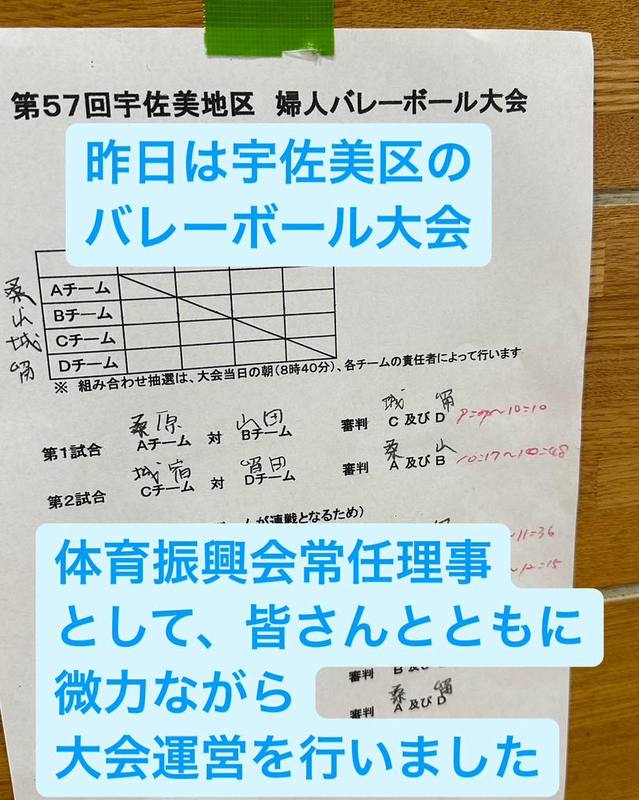 第57回宇佐美地区 婦人バレーボール大会
昨日は宇佐美区の
バレーボール大会
桑 Aチーム
山 Bチーム
城 Cチーム
Dチーム
※ 組み合わせ抽選は、大会当日の朝(8時40分)、各チームの責任者によって行います
桑原 山田 城
第1試合 Aチーム 対 Bチーム 審判 C 及び D ~10=10
城宿 桑 山
第2試合 Cチーム 対 Dチーム 審判 A 及び B 10=17~10=48
が連戦となるため)
~11=36
~12=15
体育振興会常任理事
として、皆さんとともに
微力ながら
大会運営を行いました
審判 B 及び
桑
審判 A 及び D